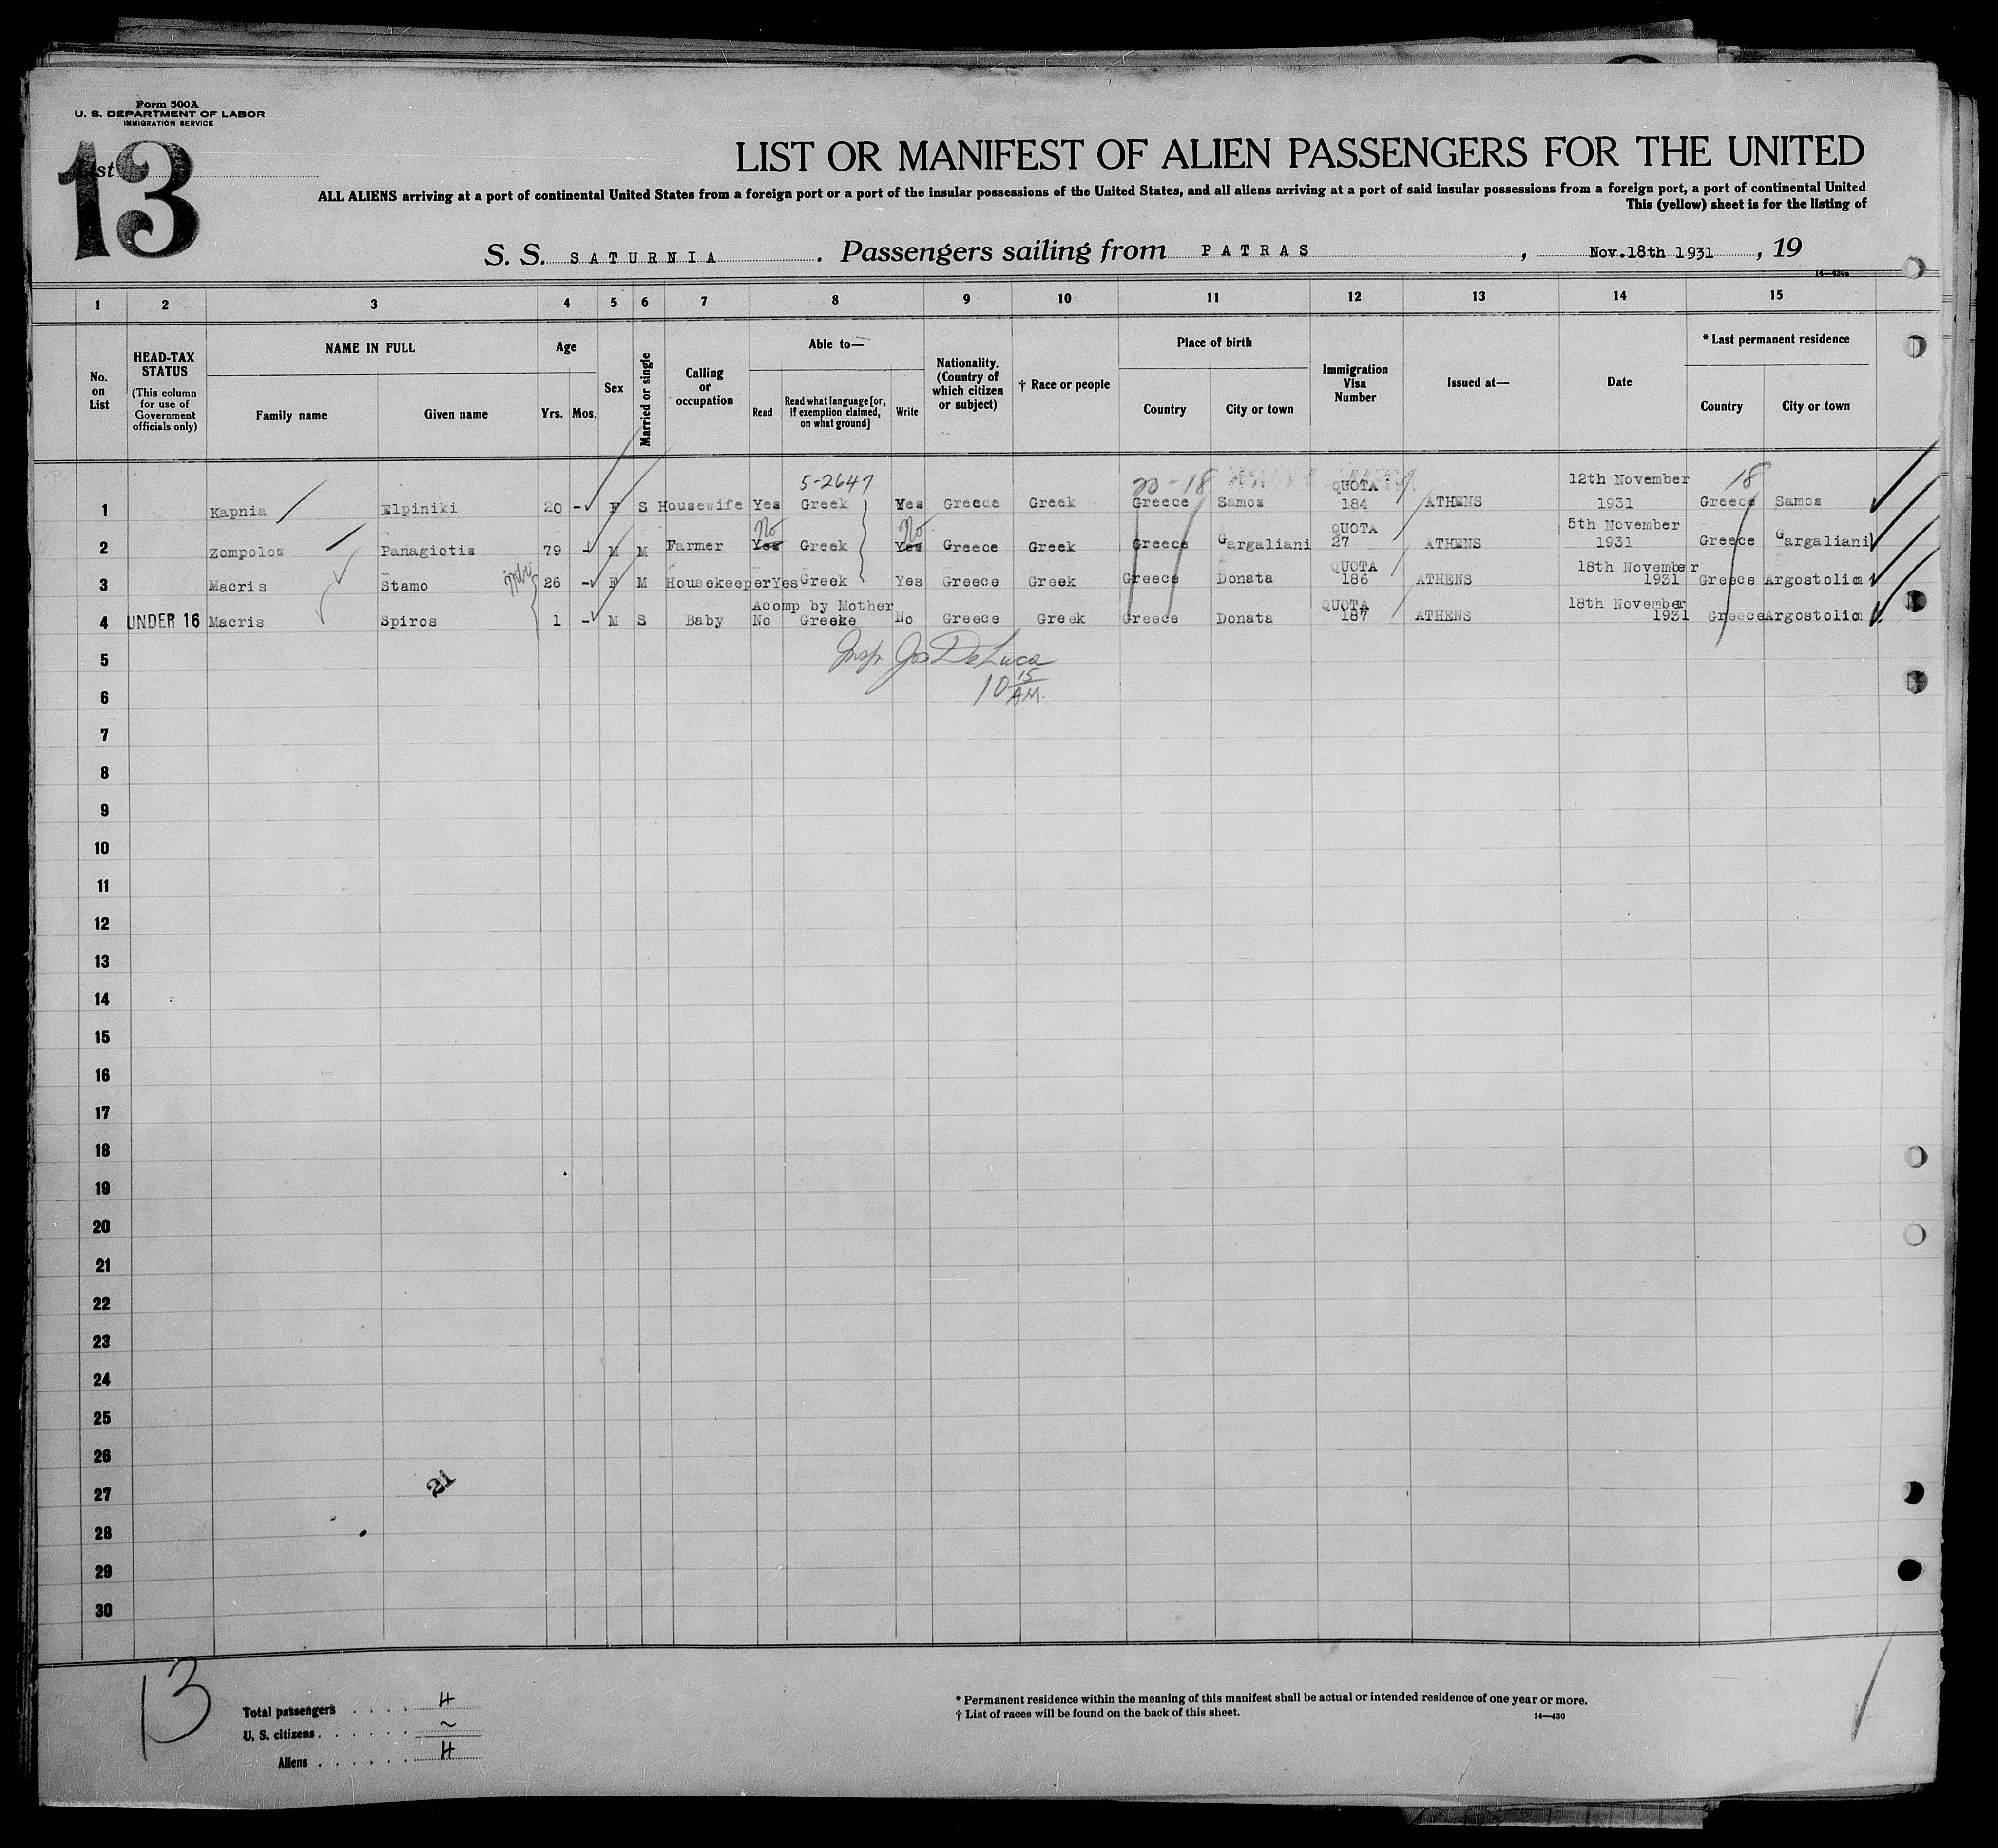 Form 500A
U. S. DEPARTMENT OF LABOR
IMMIGRATION SERVICE
List 13
LIST OR MANIFEST OF ALIEN PASSENGERS FOR THE UNITED
ALL ALIENS arriving at a port of continental United States from a foreign port or a port of the insular possessions of the United States, and all aliens arriving at a port of said insular possessions from a foreign port, a port of continental United
This (yellow) sheet is for the listing of
S. S. SATURNIA . Passengers sailing from PATRAS , Nov.18th 1931 , 19
14—430a
1 2 3 4 5 6 7 8 9 10 11 12 13 14 15
No. on List
HEAD-TAX STATUS
(This column for use of Government officials only)
NAME IN FULL
Family name
Given name
Age
Yrs.
Mos.
Sex
Married or single
Calling or occupation
Able to—
Read
Read what language [or, if exemption claimed, on what ground]
Write
Nationality. (Country of which citizen or subject)
† Race or people
Place of birth
Country
City or town
Immigration Visa Number
Issued at—
Date
* Last permanent residence
Country
City or town
5-2647 20-18 QUOTA 12th November 18
1 Kapnia Elpiniki 20 - F S Housewife Yes Greek Yes Greece Greek Greece Samos 184 ATHENS 1931 Greece Samos
No No QUOTA 5th November
2 Zompolos Panagiotis 79 - M M Farmer Yes Greek Yes Greece Greek Greece Gargaliani 27 ATHENS 1931 Greece Gargaliani
QUOTA 18th November
3 Macris Stamo 26 - F M Housekeeper Yes Greek Yes Greece Greek Greece Donata 186 ATHENS 1931 Greece Argostolion
Acomp by Mother QUOTA 18th November
4 UNDER 16 Macris Spiros 1 - M S Baby No Greeke No Greece Greek Greece Donata 187 ATHENS 1931 Greece Argostolion
Insp Jos DeLuca
5
10 15 A.M.
6
7
8
9
10
11
12
13
14
15
16
17
18
19
20
21
22
23
24
25
26
21
27
28
29
30
13
Total passengers . . . . 4
U. S. citizens . . . . . . ~
Aliens . . . . . . 4
* Permanent residence within the meaning of this manifest shall be actual or intended residence of one year or more.
† List of races will be found on the back of this sheet.
14—430